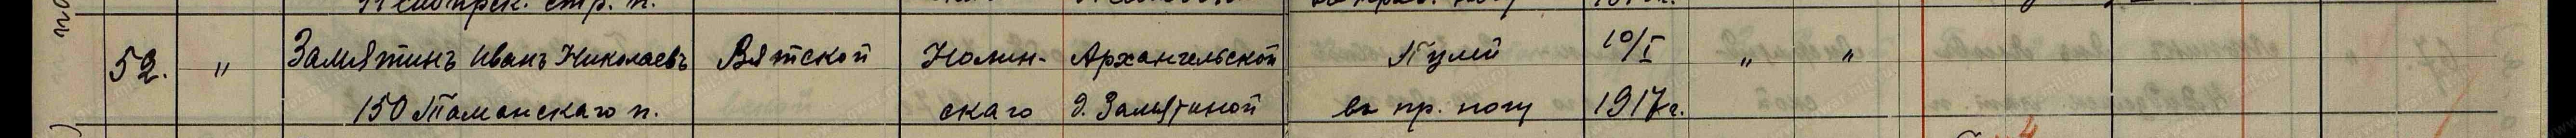 52. " Замятинъ Иванъ Николаевъ Вятской Нолин- Архангельской Пулей 10/I " "
150 Таманскаго п. скаго д. Замятиной въ пр. ногу 1917г.